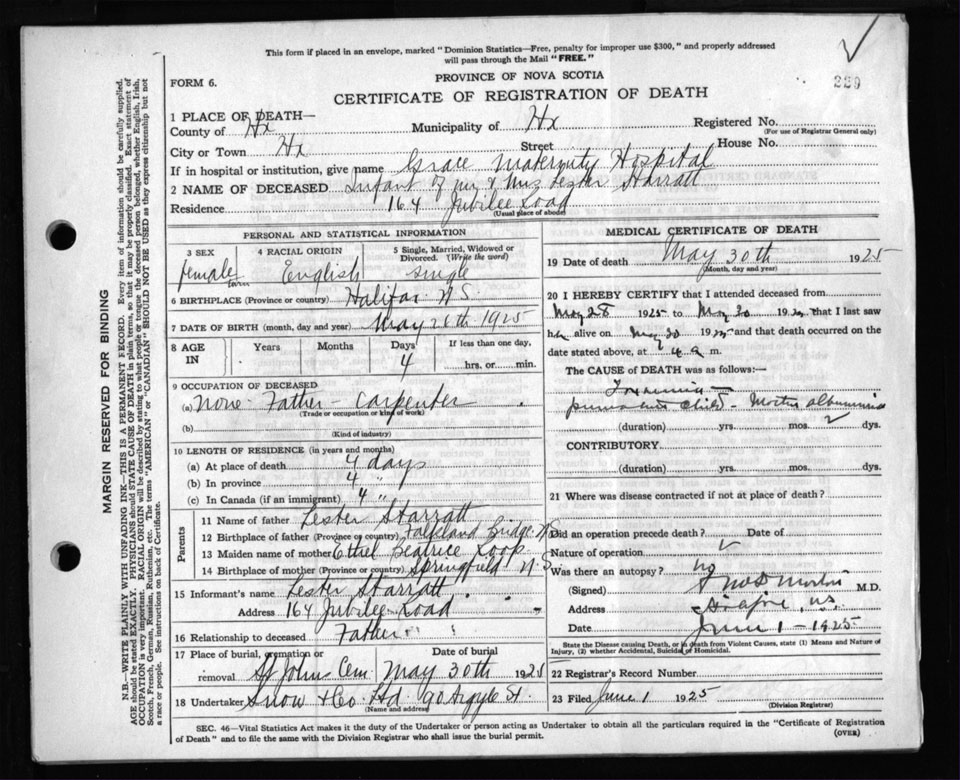 This form if placed in an envelope, marked "Dominion Statistics—Free, penalty for improper use $300," and properly addressed
will pass through the Mail "FREE."
FORM 6.
PROVINCE OF NOVA SCOTIA
229
CERTIFICATE OF REGISTRATION OF DEATH
1 PLACE OF DEATH—
County of Hx
Municipality of Hx
Registered No.
(For use of Registrar General only)
City or Town Hx
Street
House No.
If in hospital or institution, give name Grace Maternity Hospital
2 NAME OF DECEASED Infant of Mr & Mrs Lester Starratt
Residence 164 Jubilee Road
(Usual place of abode)
PERSONAL AND STATISTICAL INFORMATION
3 SEX
female
4 RACIAL ORIGIN
English
5 Single, Married, Widowed or
Divorced. (Write the word)
single
6 BIRTHPLACE (Province or country) Halifax N.S.
7 DATE OF BIRTH (month, day and year) May 26th 1925
8 AGE
IN
Years
Months
Days
4
If less than one day,
hrs. or min.
9 OCCUPATION OF DECEASED
(a) None - Father - Carpenter
(Trade or occupation or kind of work)
(b)
(Kind of industry)
10 LENGTH OF RESIDENCE (in years and months)
(a) At place of death 4 days
(b) In province 4 "
(c) In Canada (if an immigrant) 4 "
Parents
11 Name of father Lester Starratt
12 Birthplace of father (Province or country) Falkland Bridge N.S.
13 Maiden name of mother Ethel Beatrice Roop
14 Birthplace of mother (Province or country) Springfield N.S.
15 Informant's name Lester Starratt
Address 164 Jubilee Road
16 Relationship to deceased Father
17 Place of burial, cremation or
removal St John Cem
Date of burial
May 30th 1925
18 Undertaker Snow & Co Ltd 90 Argyle St.
(Name and address)
MEDICAL CERTIFICATE OF DEATH
19 Date of death May 30th 1925
(Month, day and year)
20 I HEREBY CERTIFY that I attended deceased from
May 28 1925 to May 30 192 that I last saw
her alive on May 30 192 and that death occurred on
date stated above, at 4 a m.
The CAUSE of DEATH was as follows:—
Toxemia
child
(duration) yrs. mos. 2 dys.
CONTRIBUTORY.
(duration) yrs. mos. dys.
21 Where was disease contracted if not at place of death?
Did an operation precede death? Date of
Nature of operation
Was there an autopsy? no
(Signed) M.D.
Address Halifax, N.S.
Date June 1 - 1925
State the Disease causing Death, or in death from Violent Causes, state (1) Means and Nature of
Injury, (2) whether Accidental, Suicidal or Homicidal.
22 Registrar's Record Number
23 Filed June 1 1925
(Division Registrar)
SEC. 46—Vital Statistics Act makes it the duty of the Undertaker or person acting as Undertaker to obtain all the particulars required in the "Certificate of Registration
of Death" and to file the same with the Division Registrar who shall issue the burial permit.
(OVER)
MARGIN RESERVED FOR BINDING
N.B.—WRITE PLAINLY WITH UNFADING INK—THIS IS A PERMANENT RECORD. Every item of information should be carefully supplied.
AGE should be stated EXACTLY. PHYSICIANS should STATE CAUSE OF DEATH in plain terms, so that it may be properly classified. Exact statement of
OCCUPATION is very important. RACIAL ORIGIN will be described by stating to what people or tongue the deceased person belonged, whether English, Irish,
Scotch, French, German, Russian, Ruthenian, etc. The terms "AMERICAN" or "CANADIAN" SHOULD NOT BE USED as they express citizenship but not
a race or people. See instructions on back of Certificate.